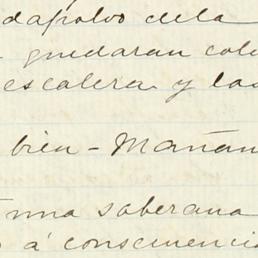 dapolvo dela
quedaran colo
escalera y las
bien - Mañan
una soberana
á consecuenci